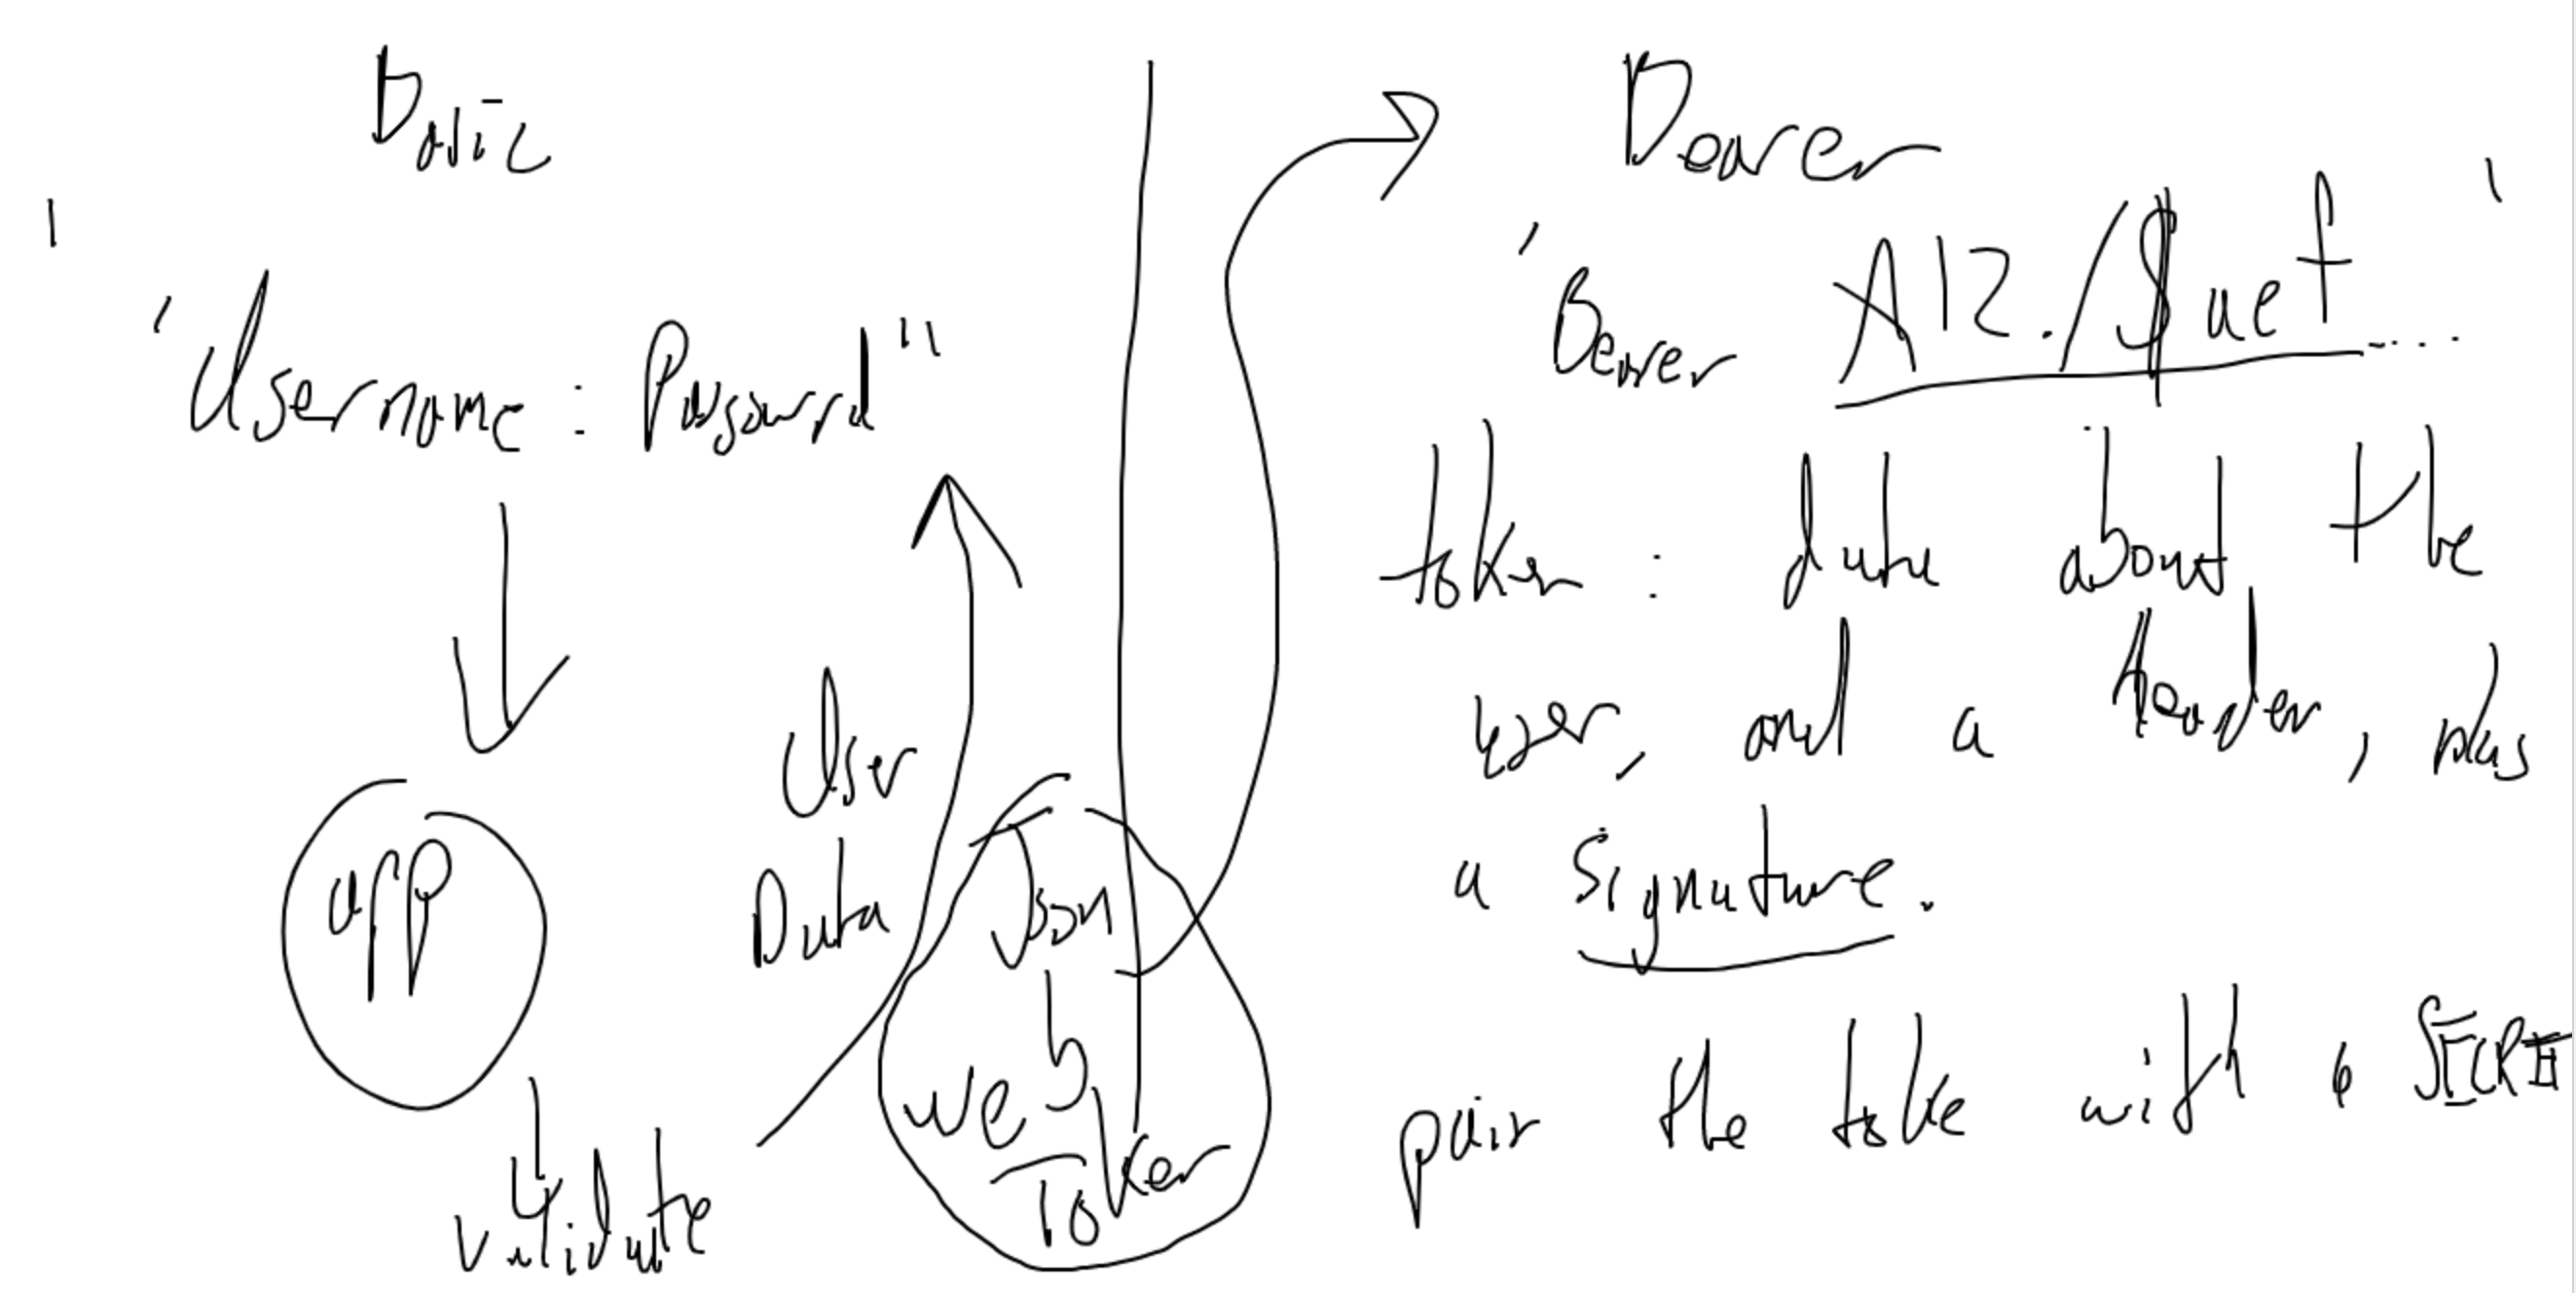 Basic
"Username : Password"
app
validate
User
Data
Json
Web
Token
Bearer
'Bearer A12./$uef....'
token : data about the
user, and a header, plus
a signature.
pair the toke with a SECRET